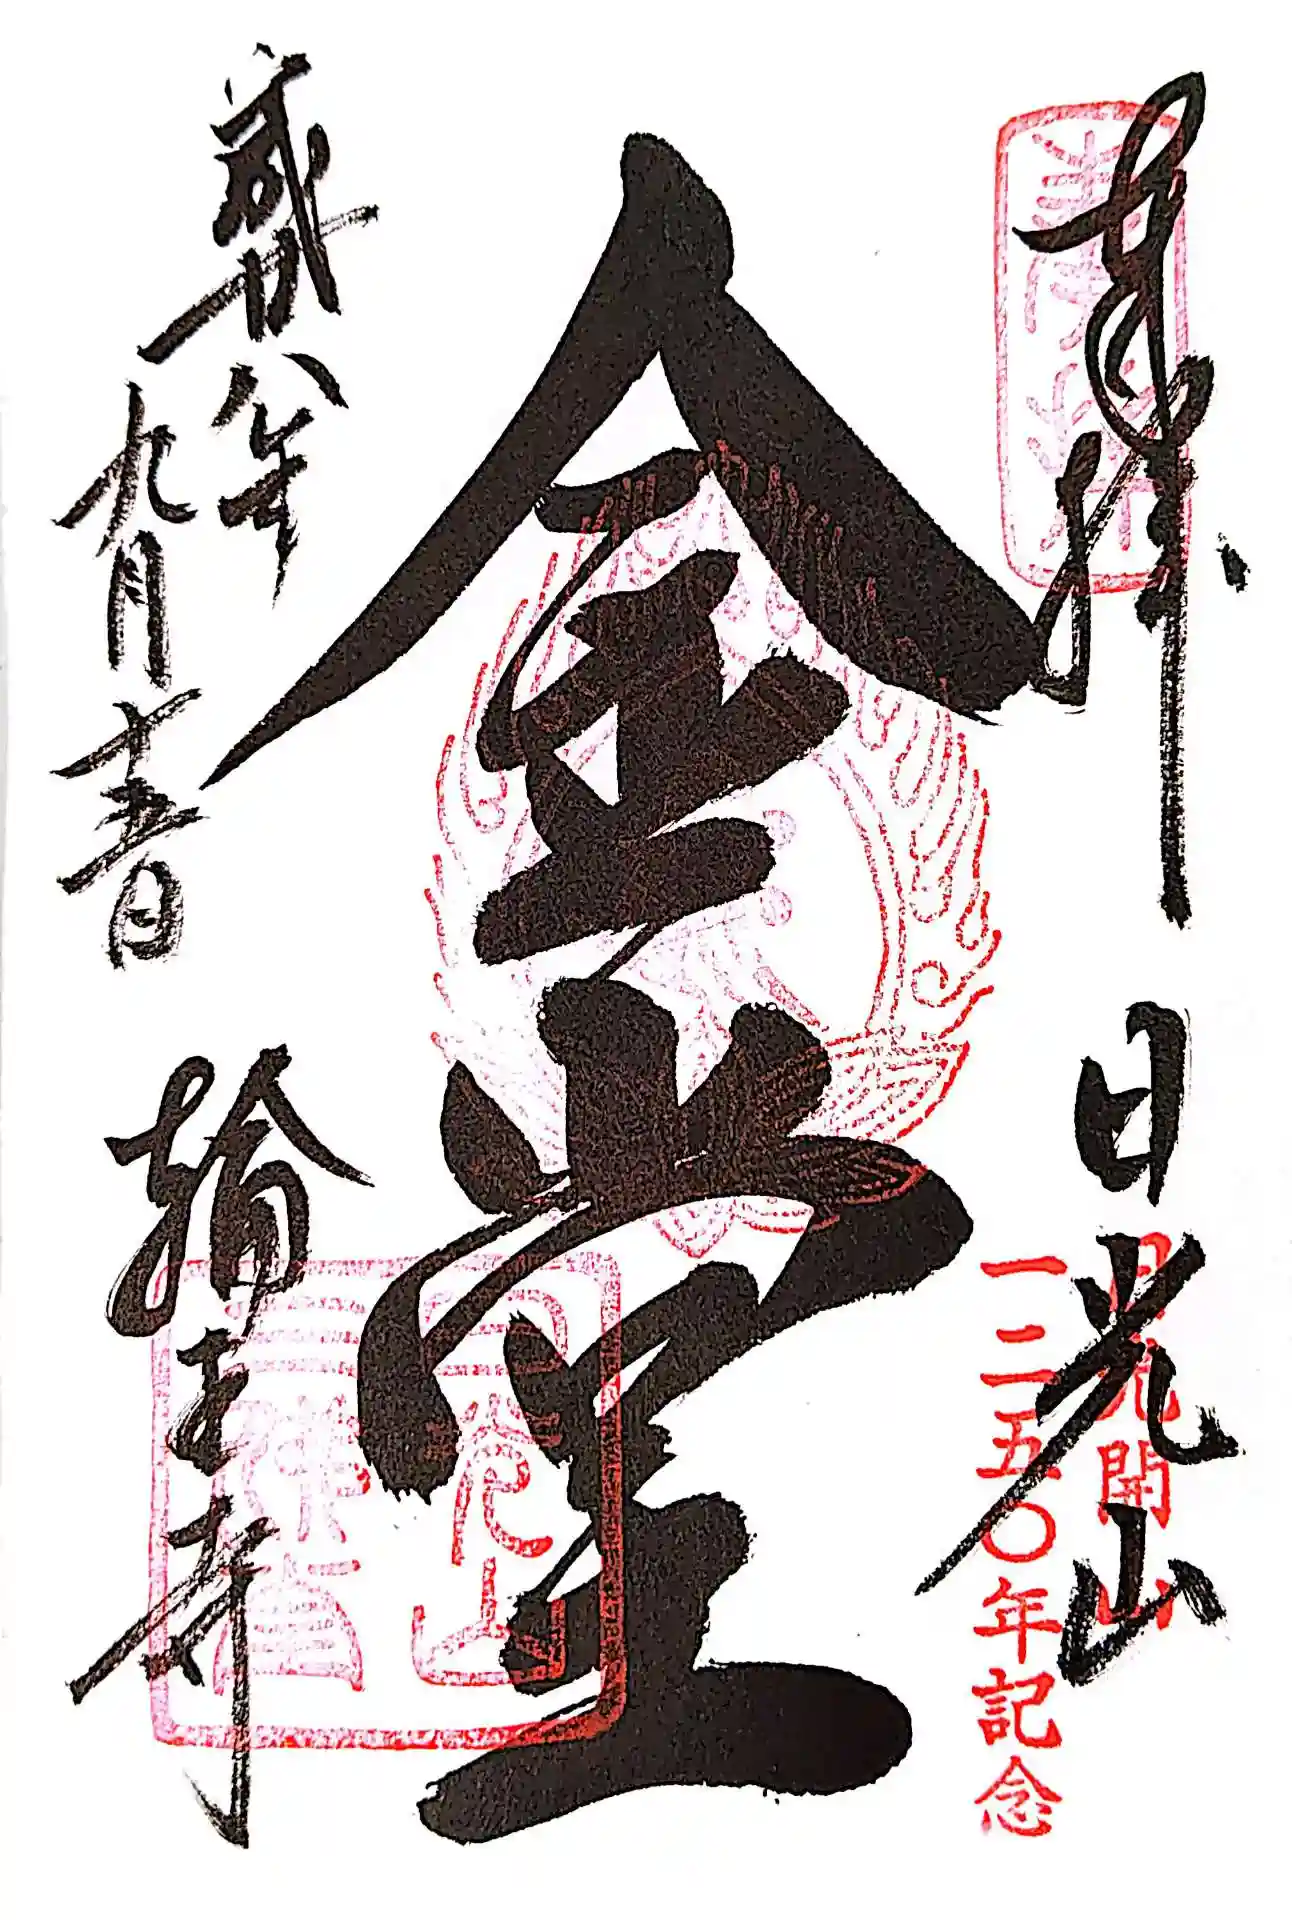 奉拝 日光山
日光開山
一二五〇年記念
金堂
日光山
三佛堂
平成廿八年
九月十五日
輪王寺